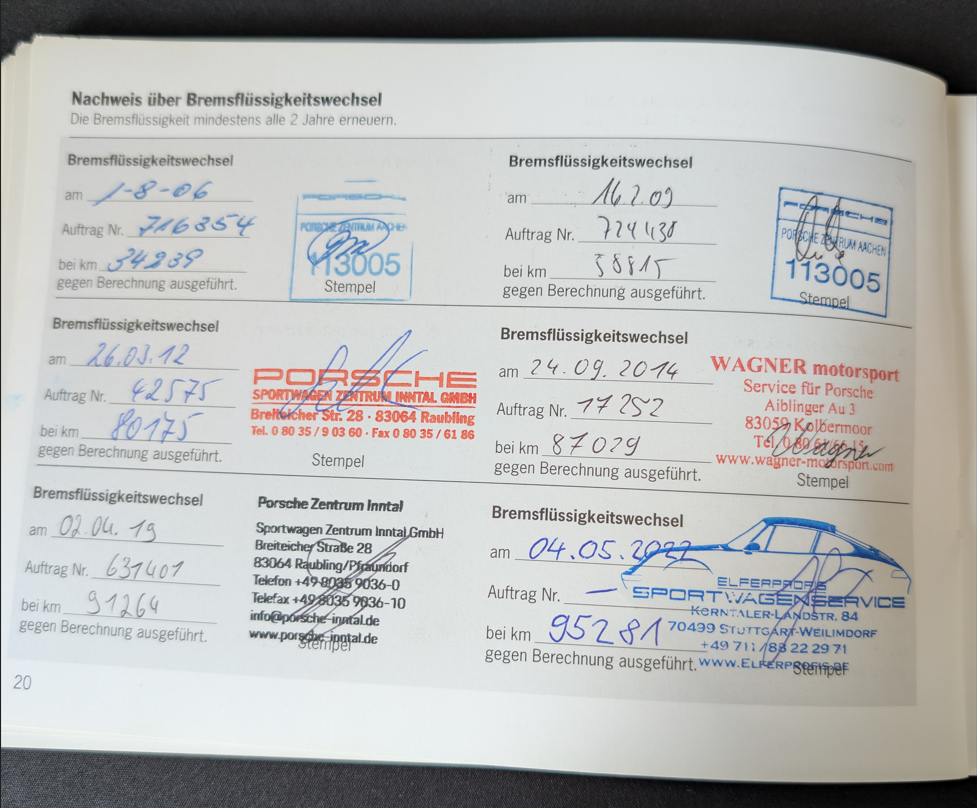 Nachweis über Bremsflüssigkeitswechsel
Die Bremsflüssigkeit mindestens alle 2 Jahre erneuern.
Bremsflüssigkeitswechsel
am 1-8-06
Auftrag Nr. 716354
bei km 34239
gegen Berechnung ausgeführt.
PORSCHE
PORSCHE ZENTRUM AACHEN
113005
Stempel
Bremsflüssigkeitswechsel
am 16.2.09
Auftrag Nr. 724430
bei km 58815
gegen Berechnung ausgeführt.
PORSCHE
PORSCHE ZENTRUM AACHEN
113005
Stempel
Bremsflüssigkeitswechsel
am 26.03.12
Auftrag Nr. 42575
bei km 80175
gegen Berechnung ausgeführt.
PORSCHE
SPORTWAGEN ZENTRUM INNTAL GMBH
Breiteicher Str. 28 · 83064 Raubling
Tel. 0 80 35 / 9 03 60 · Fax 0 80 35 / 61 86
Stempel
Bremsflüssigkeitswechsel
am 24.09.2014
Auftrag Nr. 17252
bei km 87029
gegen Berechnung ausgeführt.
WAGNER motorsport
Service für Porsche
Aiblinger Au 3
83059 Kolbermoor
Tel.
www.wagner-motorsport.com
Wagner
Stempel
Bremsflüssigkeitswechsel
am 02.04.19
Auftrag Nr. 631401
bei km 91264
gegen Berechnung ausgeführt.
Porsche Zentrum Inntal
Sportwagen Zentrum Inntal GmbH
Breiteicher Straße 28
83064 Raubling/Pfraundorf
Telefon +49 8035 9036-0
Telefax +49 8035 9036-10
info@porsche-inntal.de
www.porsche-inntal.de
Stempel
Bremsflüssigkeitswechsel
am 04.05.2022
Auftrag Nr. –
bei km 95281
gegen Berechnung ausgeführt.
ELFERPROFIS
SPORTWAGENSERVICE
KERNTALER-LANDSTR. 84
70499 STUTTGART-WEILIMDORF
+49 711/88 22 29 71
WWW.ELFERPROFIS.DE
Stempel
20